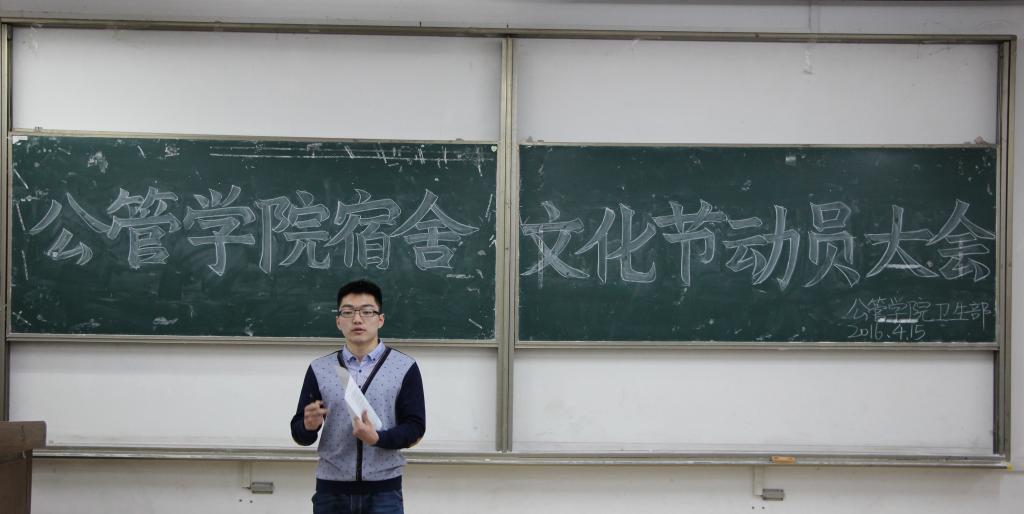 公管学院宿舍文化节动员大会
公管学院卫生部
2016.4.15